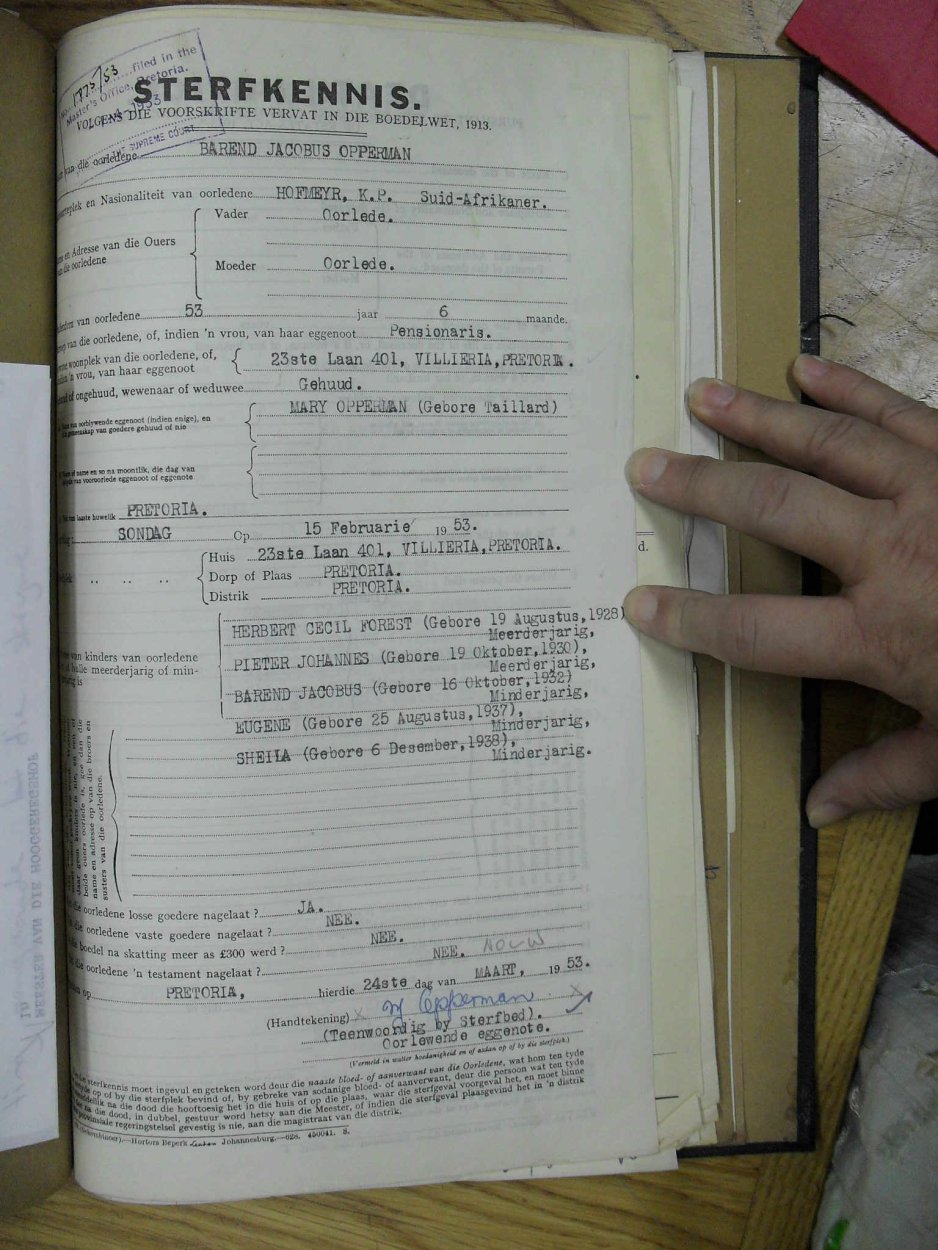 1975/53
No. ........ filed in the
Master's Office, Pretoria.
1953
SUPREME COURT
STERFKENNIS.
VOLGENS DIE VOORSKRIFTE VERVAT IN DIE BOEDELWET, 1913.
van die oorledene BAREND JACOBUS OPPERMAN
en Nasionaliteit van oorledene HOFMEYR, K.P. Suid-Afrikaner.
en Adresse van die Ouers
die oorledene
Vader Oorlede.
Moeder Oorlede.
van oorledene 53 jaar 6 maande.
van die oorledene, of, indien 'n vrou, van haar eggenoot Pensionaris.
woonplek van die oorledene, of,
'n vrou, van haar eggenoot
23ste Laan 401, VILLIERIA, PRETORIA.
of ongehuud, wewenaar of weduwee Gehuud.
van oorblywende eggenoot (indien enige), en
gemeenskap van goedere gehuud of nie
MARY OPPERMAN (Gebore Taillard)
name en so na moontlik, die dag van
van vooroorlede eggenoot of eggenote
van laaste huwelik PRETORIA.
SONDAG Op 15 Februarie 1953.
Huis 23ste Laan 401, VILLIERIA, PRETORIA.
Dorp of Plaas PRETORIA.
Distrik PRETORIA.
d.
van kinders van oorledene
hulle meerderjarig of min-
is
HERBERT CECIL FOREST (Gebore 19 Augustus, 1928)
Meerderjarig,
PIETER JOHANNES (Gebore 19 Oktober, 1930),
Meerderjarig,
BAREND JACOBUS (Gebore 16 Oktober, 1932)
Minderjarig,
EUGENE (Gebore 25 Augustus, 1937),
Minderjarig,
SHEILA (Gebore 6 Desember, 1938),
Minderjarig.
beide ouers oorlede is, gee dan die
name en adresse op van die broers en
susters van die oorledene.
die oorledene losse goedere nagelaat ? JA.
die oorledene vaste goedere nagelaat ? NEE.
boedel na skatting meer as £300 werd ? NEE.
die oorledene 'n testament nagelaat ? NEE.
op PRETORIA, hierdie 24ste dag van MAART, 1953.
(Handtekening) x M Opperman x
(Teenwoordig by Sterfbed).
Oorlewende eggenote.
(Vermeld in watter hoedanigheid en of aldan op of by die sterfplek.)
sterfkennis moet ingevul en geteken word deur die naaste bloed- of aanverwant van die Oorledene, wat hom ten tyde
op of by die sterfplek bevind of, by gebreke van sodanige bloed- of aanverwant, deur die persoon wat ten tyde
na die dood die hooftoesig het in die huis of op die plaas, waar die sterfgeval voorgeval het, en moet binne
na die dood, in dubbel, gestuur word hetsy aan die Meester, of indien die sterfgeval plaasgevind het in 'n distrik
regeringstelsel gevestig is nie, aan die magistraat van die distrik.
Hortors Beperk Johannesburg.—628. 450041. S.